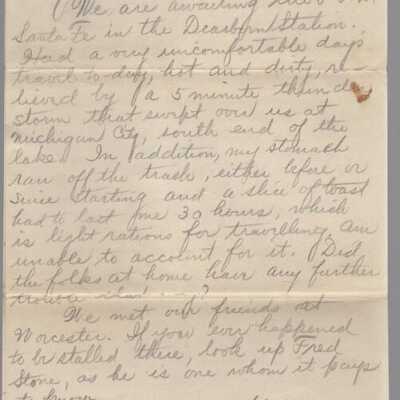 We are awaiting
Santa Fe in the Dearborn Station.
Had a very uncomfortable days
travel to-day, hot and dirty, re-
lieved by a 5 minute thunder
storm that swept over us at
Michigan City, south end of the
lake. In addition, my stomach
ran off the track, either before or
since starting and a slice of toast
had to last me 30 hours, which
is light rations for travelling. Am
unable to account for it. Did
the folks at home have any further
trouble
We met our friends at
Worcester. If you ever happened
to be stalled there, look up Fred
Stone, as he is one whom it pays
to know